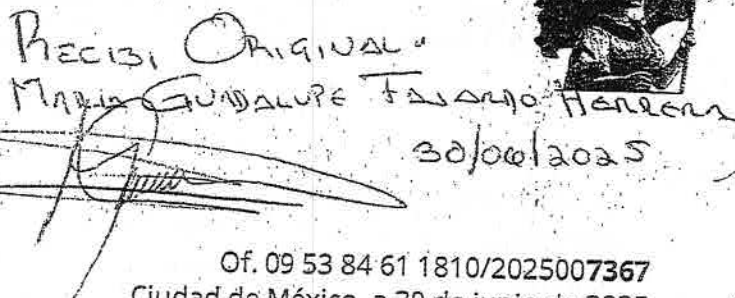 RECIBI ORIGINAL
MARIA GUADALUPE FAJARDO HERRERA
30/06/2025
Of. 09 53 84 61 1810/2025007367
Ciudad de México, a 30 de junio de 2025